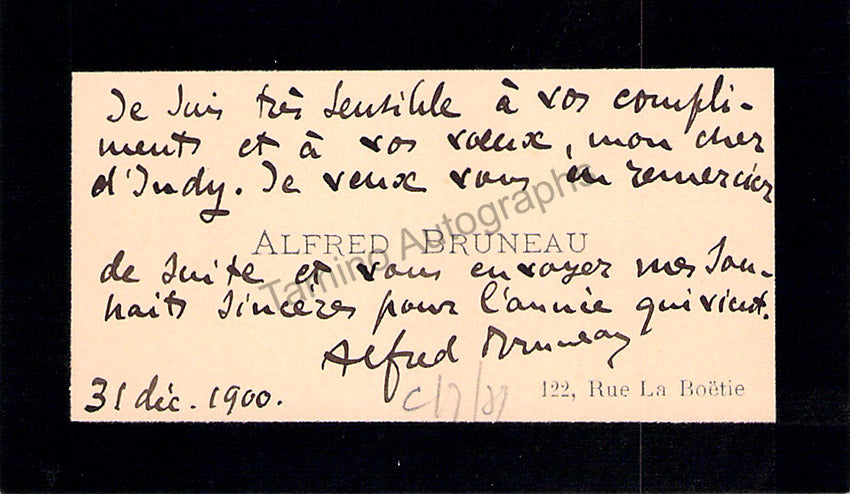 Je suis très sensible à vos compli-
ments et à vos vœux, mon cher
d'Indy. Je veux vous en remercier
ALFRED BRUNEAU
de suite et vous envoyer mes sou-
haits sincères pour l'année qui vient.
Alfred Bruneau
31 déc. 1900.
122, Rue La Boëtie
Tamino Autographs